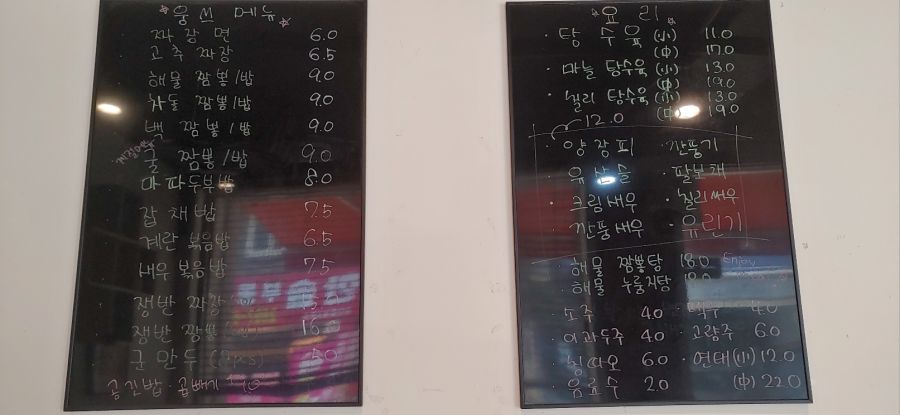 웅쓰 메뉴
짜장면 6.0
고추짜장 6.5
해물 짬뽕/밥 9.0
차돌 짬뽕/밥 9.0
백 짬뽕/밥 9.0
굴 짬뽕/밥 9.0
마파두부밥 8.0
잡채밥 7.5
계란 볶음밥 6.5
새우 볶음밥 7.5
쟁반 짜장
쟁반 짬뽕
군만두 5.0
공기밥·곱빼기
요리
탕수육 (小) 11.0
(中) 17.0
마늘 탕수육 (小) 13.0
(中) 19.0
칠리 탕수육 (小) 13.0
(中) 19.0
12.0
양장피 · 깐풍기
유산슬 · 팔보채
크림새우 · 칠리새우
깐풍새우 · 유린기
해물 짬뽕탕 18.0 Enjoy
해물 누룽지탕
소주 4.0 · 맥주 4.0
이과두주 4.0 · 고량주 6.0
칭따오 6.0 · 연태(小) 12.0
음료수 2.0 (中) 22.0